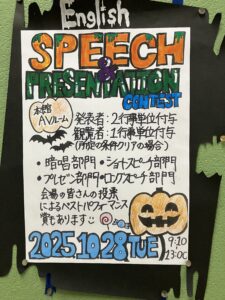 English
SPEECH
&
PRESENTATION
CONTEST
本館
AVルーム
発表者：2行事単位付与
観覧者：1行事単位付与
(所定の条件クリアの場合)
・暗唱部門・ショートスピーチ部門
・プレゼン部門・ロングスピーチ部門
会場の皆さんの投票
によるベストパフォーマンス
賞もあります
2025.10.28 TUE
9:10
13:00